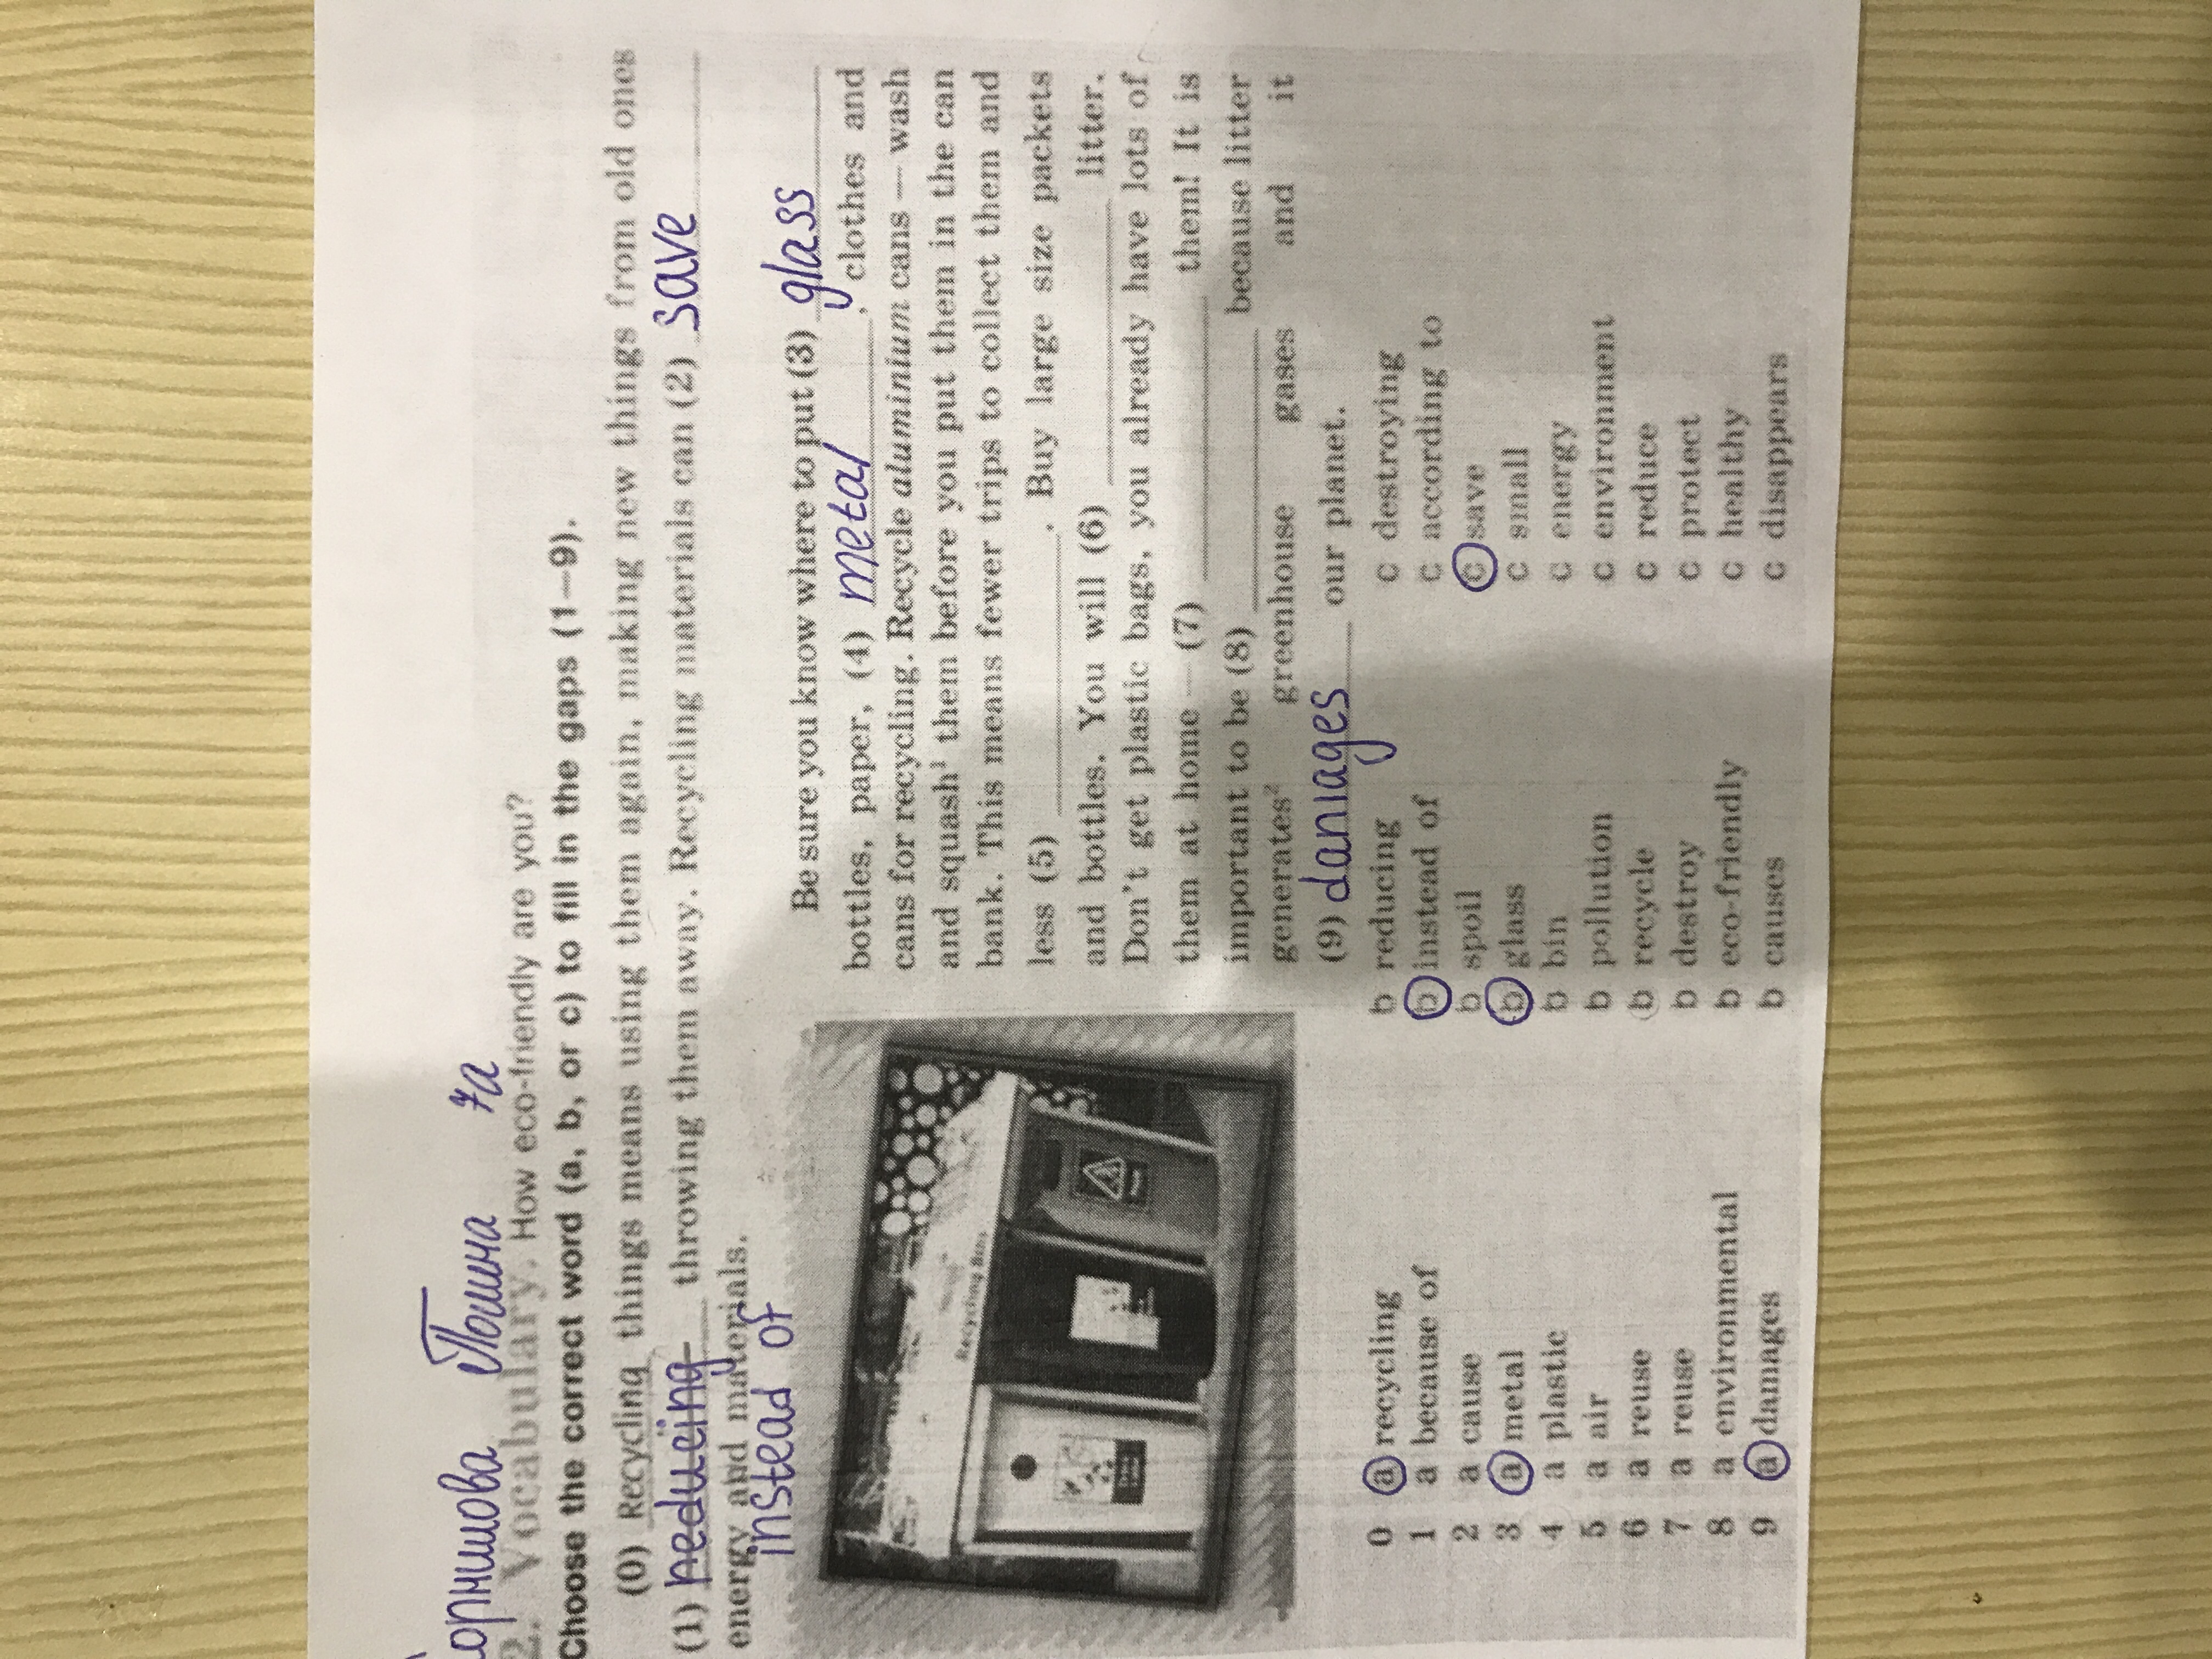 Полина 7а
2. Vocabulary. How eco-friendly are you?
Choose the correct word (a, b, or c) to fill in the gaps (1–9).
(0) Recycling things means using them again, making new things from old ones
(1) reducing throwing them away. Recycling materials can (2) save
energy and materials.
instead of
Be sure you know where to put (3) glass
bottles, paper, (4) metal, clothes and
cans for recycling. Recycle aluminium cans — wash
and squash¹ them before you put them in the can
bank. This means fewer trips to collect them and
less (5) ____. Buy large size packets
and bottles. You will (6) ____ litter.
Don't get plastic bags, you already have lots of
them at home — (7) ____ them! It is
important to be (8) ____ because litter
generates² greenhouse gases and it
(9) damages our planet.
Recycling Bins
0 a recycling b reducing c destroying
1 a because of b instead of c according to
2 a cause b spoil c save
3 a metal b glass c small
4 a plastic b bin c energy
5 a air b pollution c environment
6 a reuse b recycle c reduce
7 a reuse b destroy c protect
8 a environmental b eco-friendly c healthy
9 a damages b causes c disappears